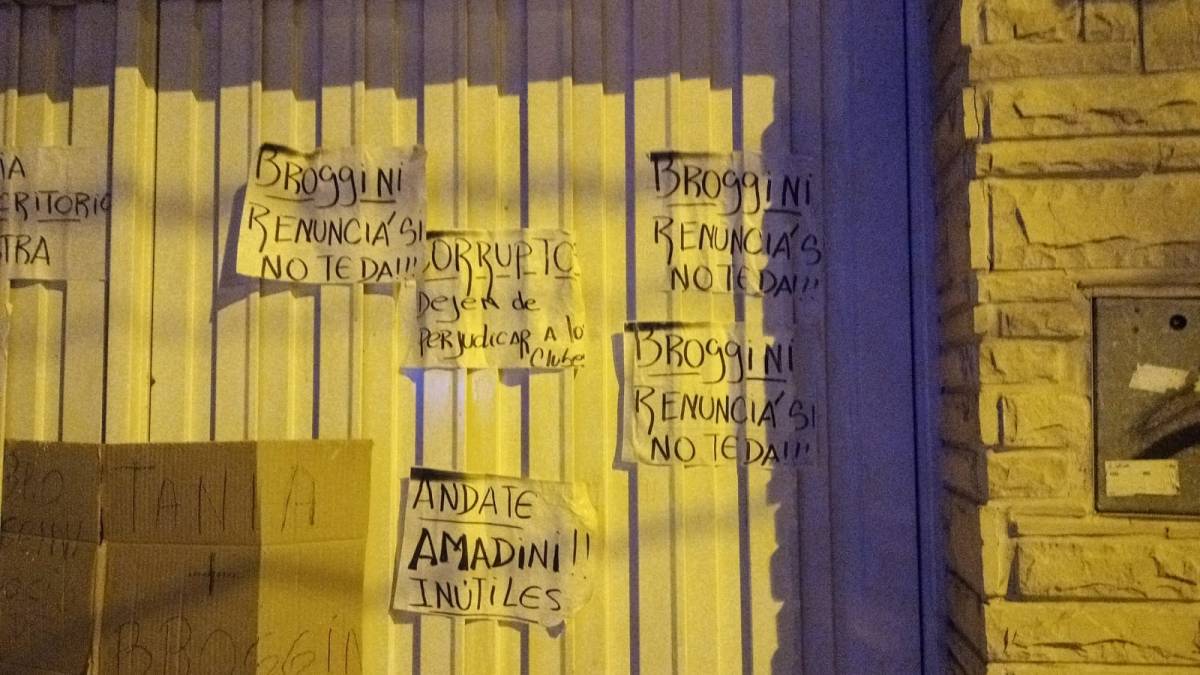 CRITORIO
TRA
BROGGINI
RENUNCIÁ SI
NO TE DA!!!
CORRUPTO
DEJEN de
PERJUDICAR A lo
Clube
BROGGINI
RENUNCIÁ S
NO TE DA!!!
BROGGINI
RENUNCIÁ SI
NO TE DA!!!
ANDATE
AMADINI!!
INÚTILES
BRO
TANIA
BROGGIN